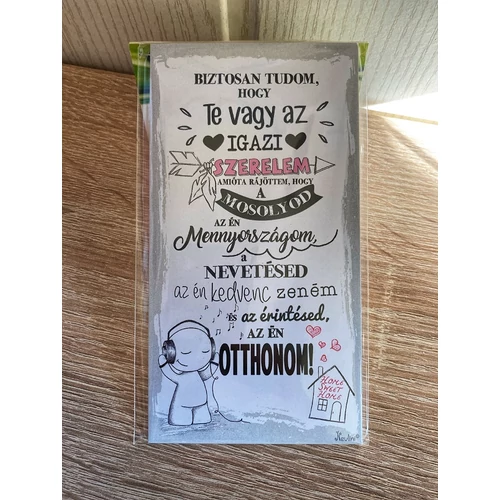 BIZTOSAN TUDOM,
HOGY
Te vagy az
IGAZI
SZERELEM
AMIÓTA RÁJÖTTEM, HOGY
A
MOSOLYOD
AZ ÉN
Mennyországom,
a
NEVETÉSED
az én kedvenc zeném
és az érintésed,
AZ ÉN
OTTHONOM!
HOME
SWEET
HOME